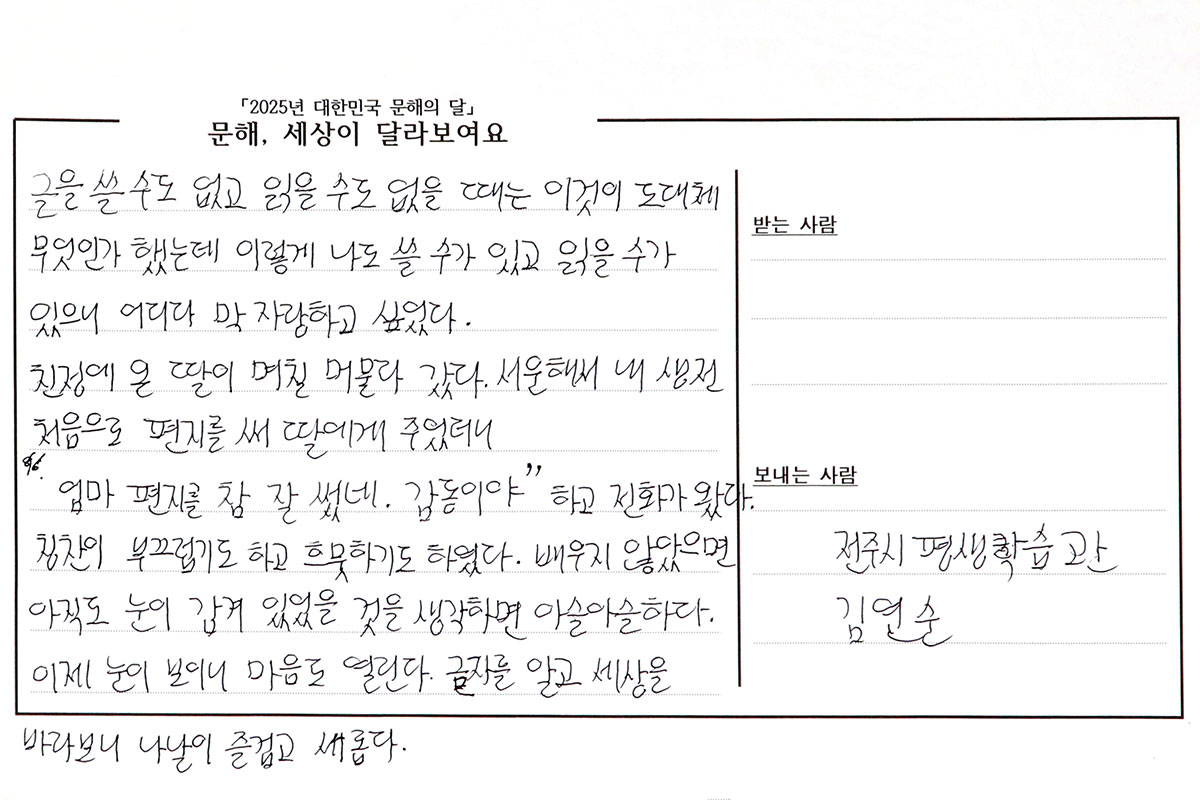 「2025년 대한민국 문해의 달」
문해, 세상이 달라보여요
글을 쓸 수도 없고 읽을 수도 없을 때는 이것이 도대체
무엇인가 했는데 이렇게 나도 쓸 수가 있고 읽을 수가
있으니 어디다 막 자랑하고 싶었다.
친정에 온 딸이 며칠 머물다 갔다. 서운해서 내 생전
처음으로 편지를 써 딸에게 주었더니
"엄마 편지를 참 잘 썼네. 감동이야" 하고 전화가 왔다.
칭찬이 부끄럽기도 하고 흐뭇하기도 하였다. 배우지 않았으면
아직도 눈이 감겨 있었을 것을 생각하면 아슬아슬하다.
이제 눈이 보이니 마음도 열린다. 글자를 알고 세상을
바라보니 나날이 즐겁고 새롭다.
받는 사람
보내는 사람
전주시 평생학습관
김연순